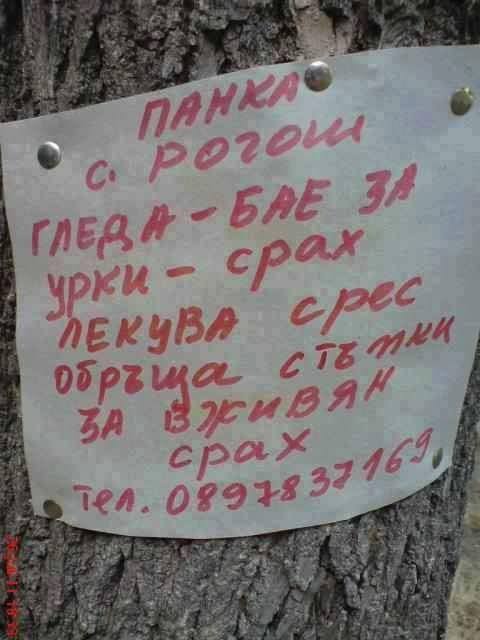 ПАНКА
с. РОГОШ
ГЛЕДА - БАЕ ЗА
УРКИ - срах
ЛЕКУВА срес
ОБРЪЩА СТЪПКИ
ЗА ВЖИВЯН
срах
тел. 0897837169